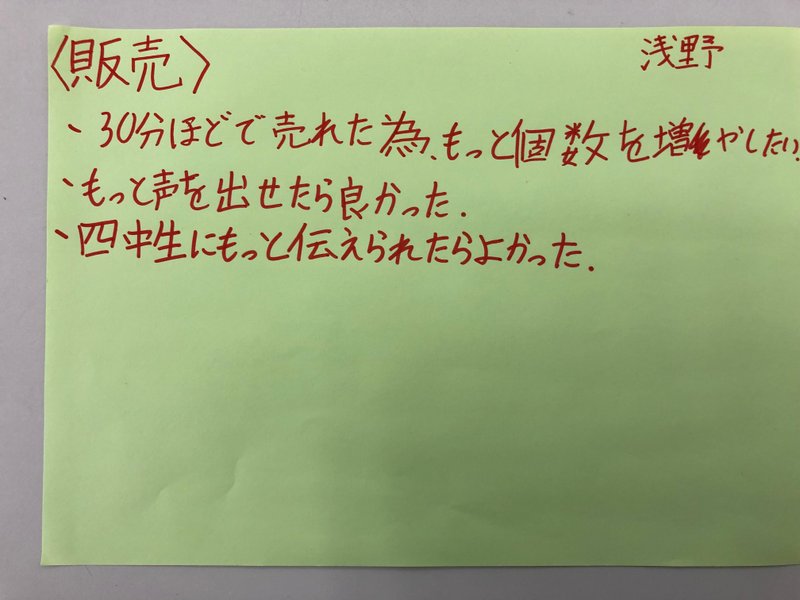 〈販売〉 浅野
、30分ほどで売れた為、もっと個数を増やしたい。
、もっと声を出せたら良かった.
、四中生にもっと伝えられたらよかった.